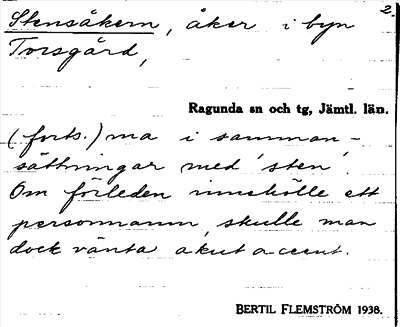 Stensåkern, åker i byn 2.
Torsgård,
Ragunda sn och tg, Jämtl. län.
(forts.) ma i samman-
sättningar med 'sten'.
Om förleden innehölle ett
personnamn, skulle man
dock vänta akut accent.
BERTIL FLEMSTRÖM 1938.